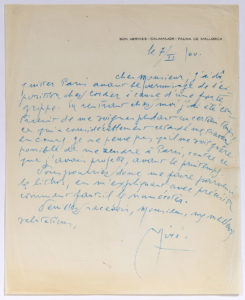 SON ABRINES - CALAMAYOR - PALMA DE MALLORCA
le 7/VI/
Cher Monsieur, j'ai dû
quitter Paris avant le vernissage de l'ex
position chez Cordier à cause d'une forte
grippe. En rentrant chez moi j'ai été con
traint de me soigner pendant un certain temps
ce qui a considérablement retardé mes travaux
en cours. Je ne pense pas qu'il me soit guère
possible de me rendre à Paris, contre ce
que j'avais projeté, avant le printemps.
Vous pourrez donc me faire parvenir
les lithos, en m'expliquant avec précision
comment faut-il le numéroter.
Veuillez recevoir, Monsieur, mes meilleures
salutations,
Miró.